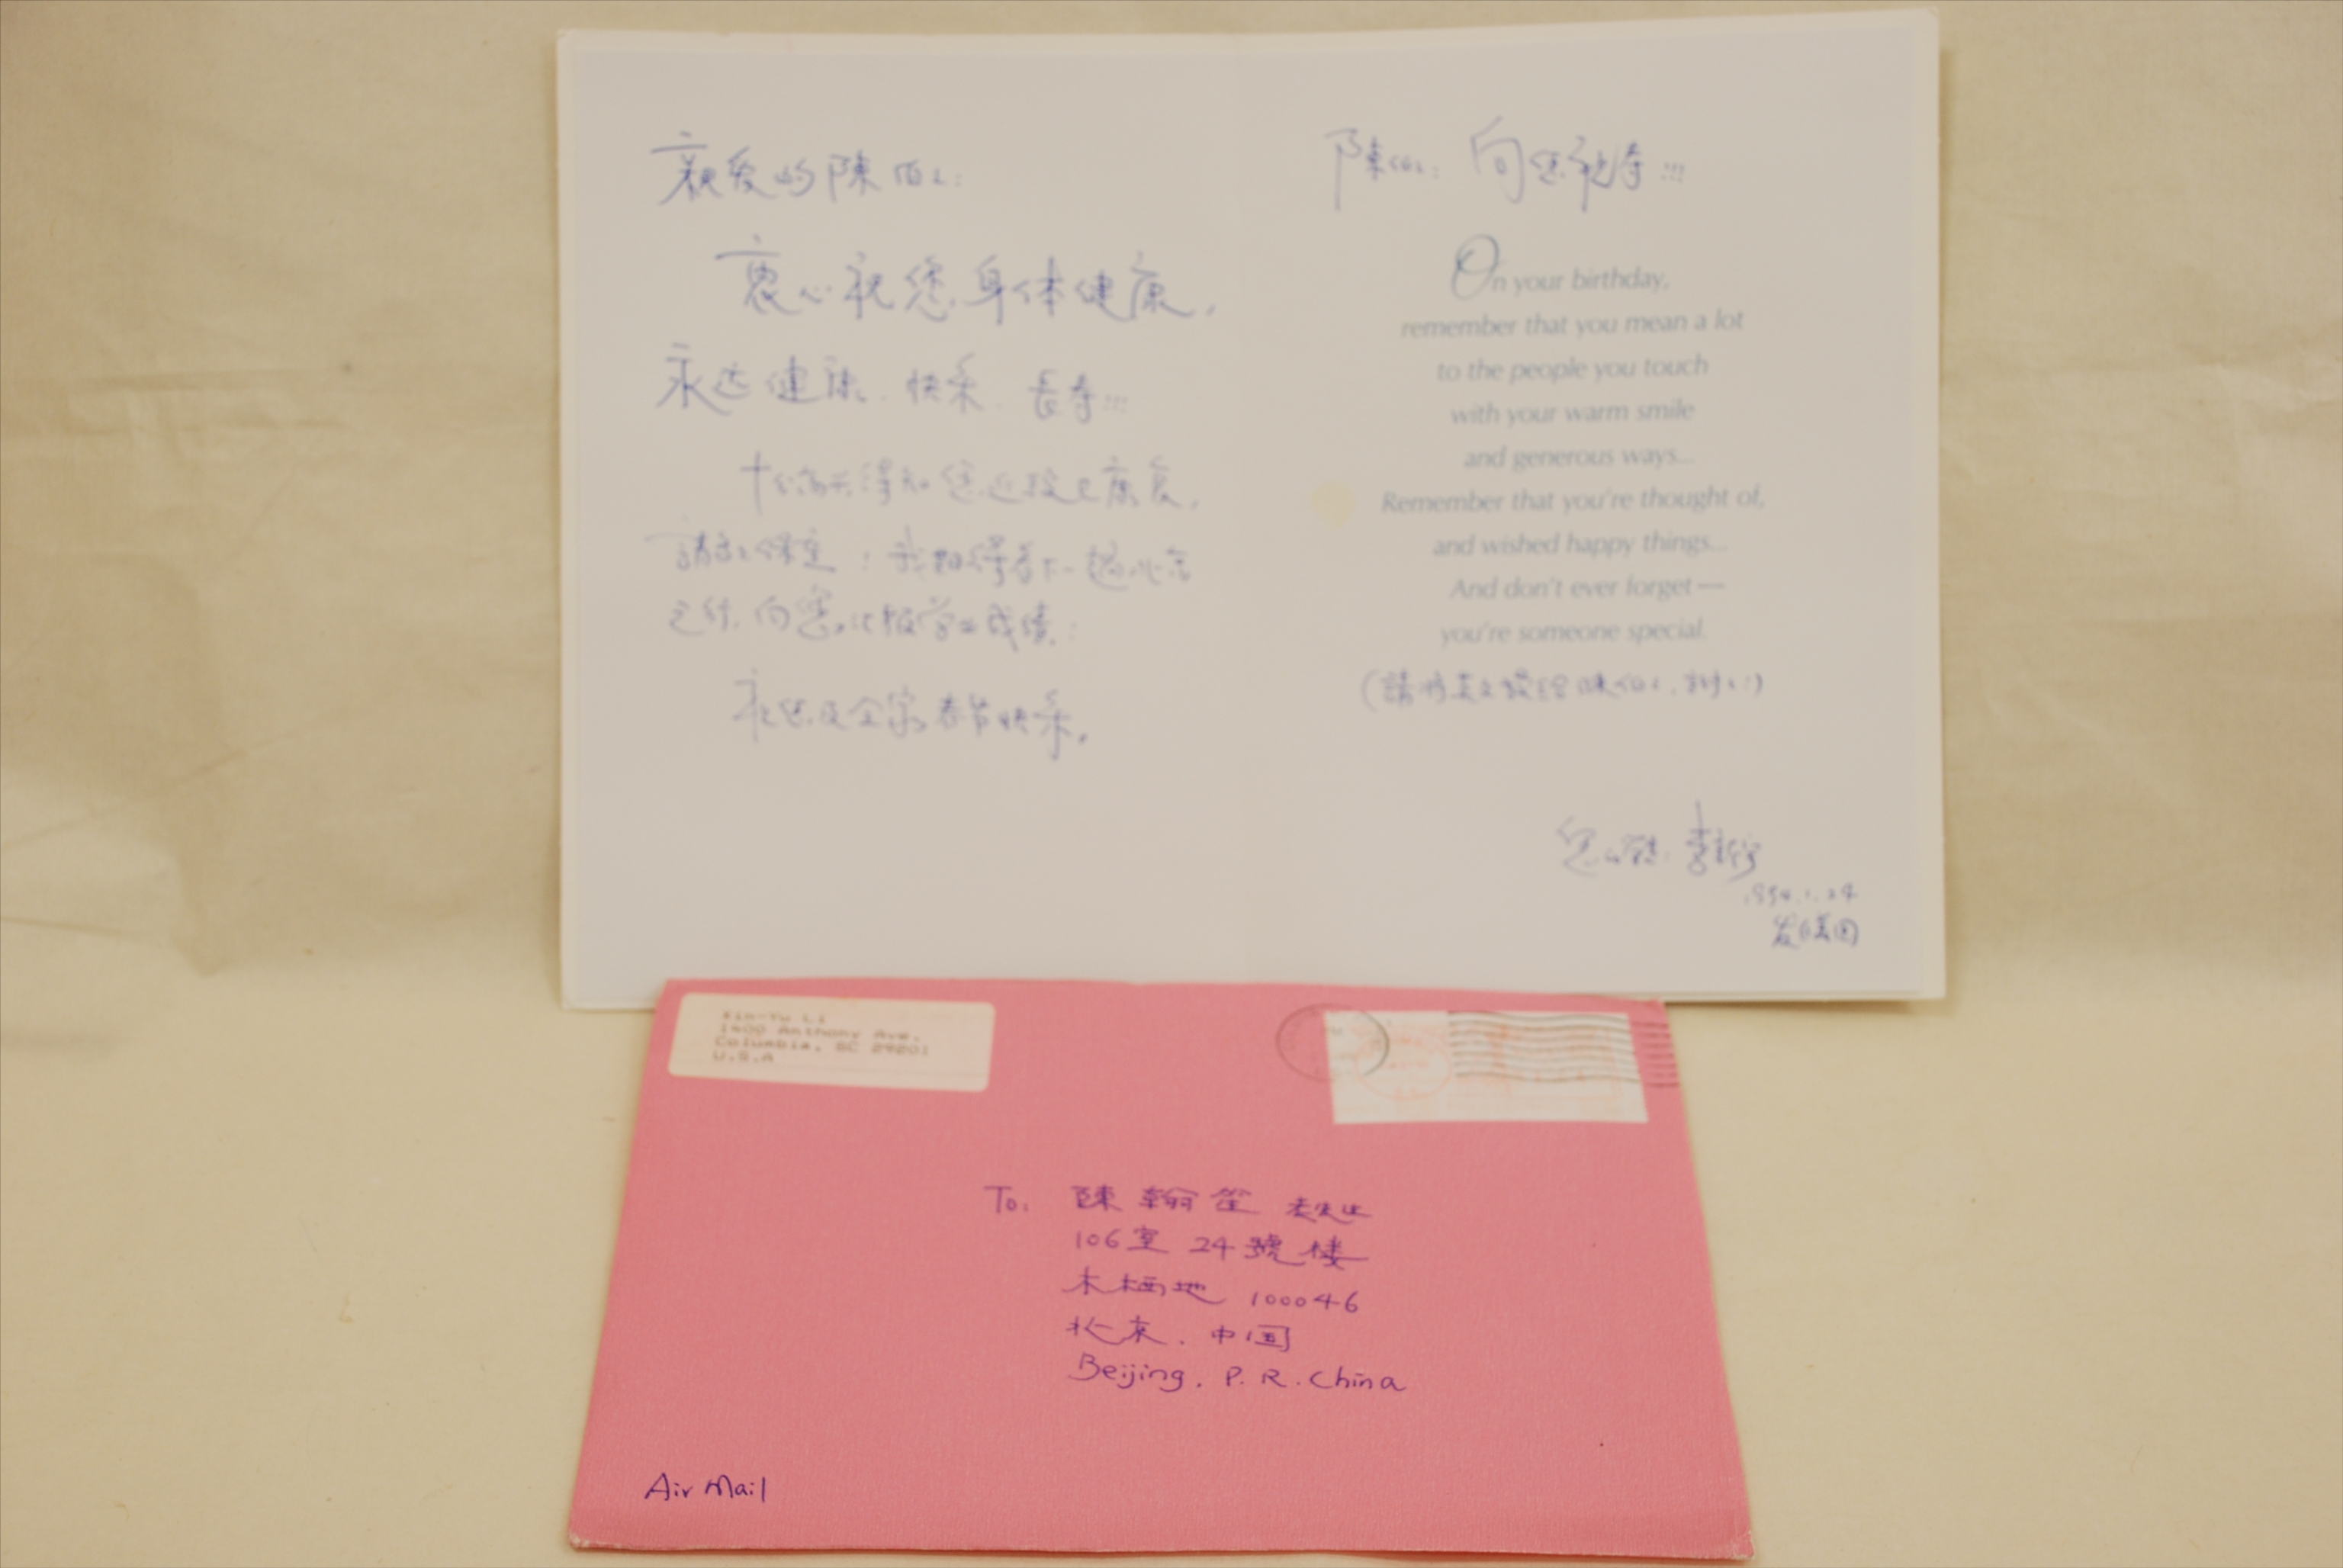 親爱的陳伯伯:
衷心祝您身体健康,
永远健康、快乐、長寿!!!
十分高兴得知您近段已康复,
請多多保重!我期得着下一
之行,向您汇报学业成绩!
祝您及全家春节快乐。
陳伯伯: 向您祝寿!!!
On your birthday,
remember that you mean a lot
to the people you touch
with your warm smile
and generous ways...
Remember that you're thought of,
and wished happy things...
And don't ever forget—
you're someone special.
(請将英文读给陳伯伯听)
李新宇
1994.1.24
发自美国
Xin-Yu Li
1400 Anthony Ave.
Columbia, SC 29201
U.S.A
To: 陳翰笙 老先生
106室 24號楼
木樨地 100046
北京、中国
Beijing, P.R.China
Air Mail